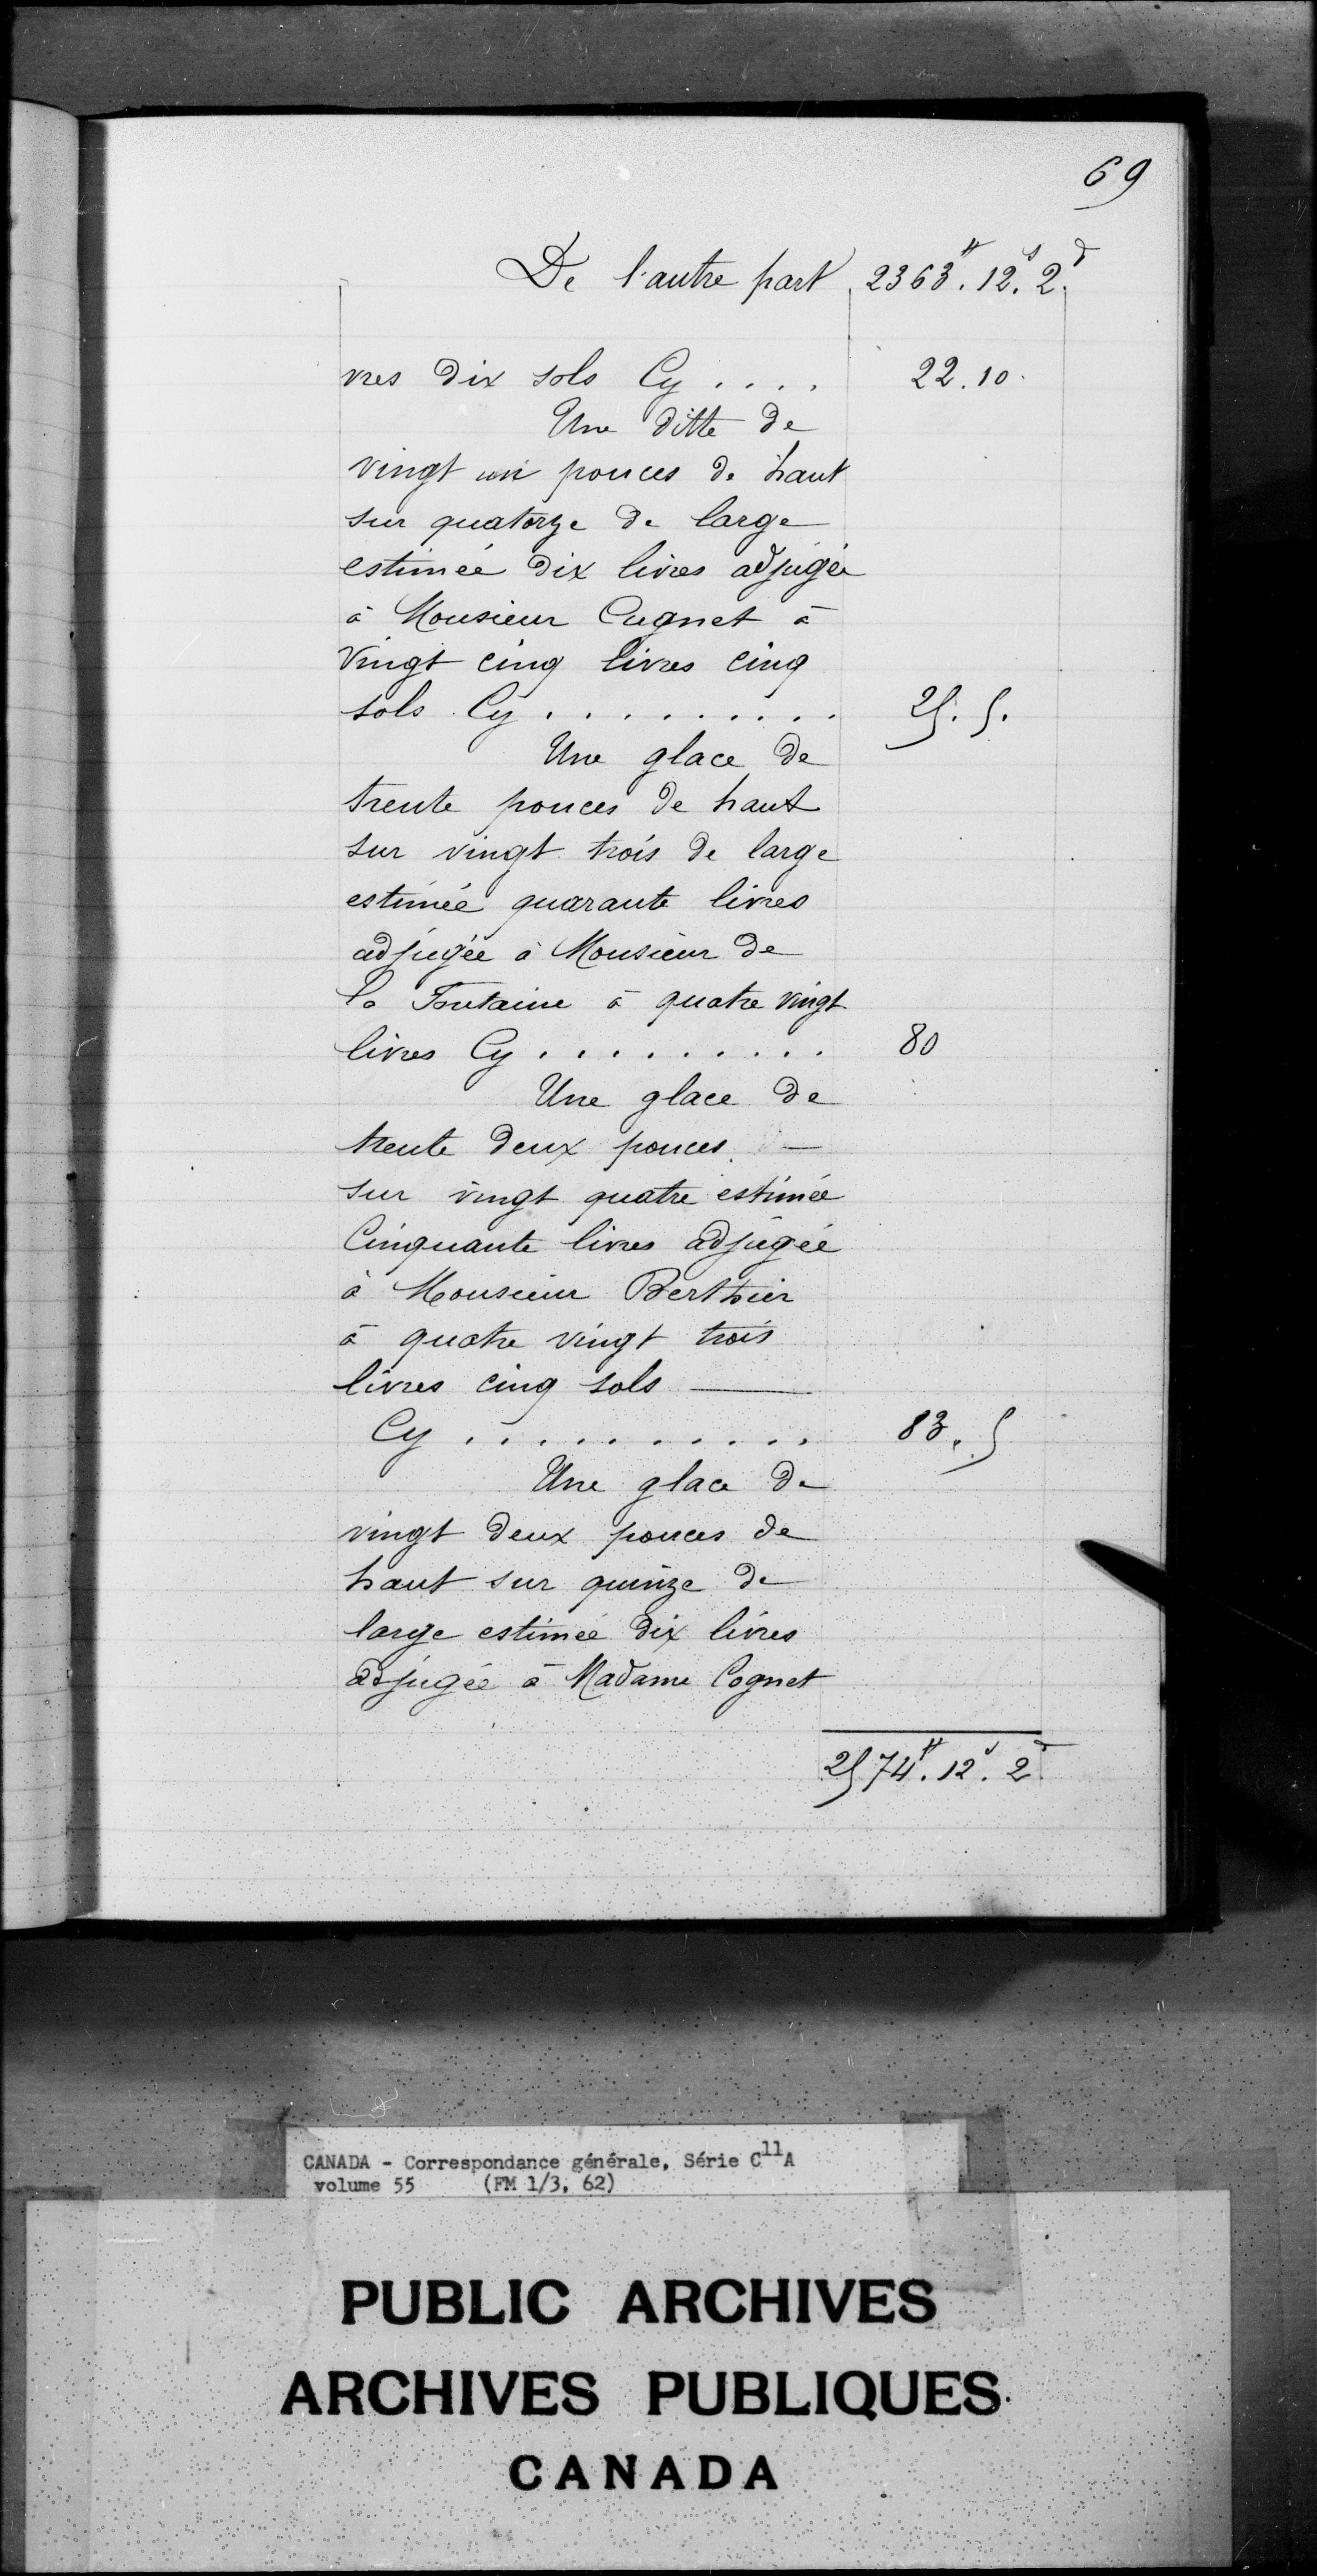 69
De l'autre part 2363ᵗᵗ. 12ˢ. 2ᵈ.
vres dix sols Cy .... 22.10.
Une ditte de
vingt un pouces de haut
sur quatorze de large
estimée dix livres adjugée
à Monsieur Cugnet à
vingt cinq livres cinq
sols Cy ......... 25. 5.
Une glace de
trente pouces de haut
sur vingt trois de large
estimée quarante livres
adjugée à Monsieur de
la Fontaine à quatre vingt
livres Cy ......... 80
Une glace de
trente deux pouces —
sur vingt quatre estimée
Cinquante livres adjugée
à Monsieur Berthier
à quatre vingt trois
livres cinq sols —
Cy .......... 83. 5
Une glace de
vingt deux pouces de
haut sur quinze de
large estimée dix livres
adjugée à Madame Cognet
2574ᵗᵗ. 12ˢ. 2ᵈ
CANADA - Correspondance générale, Série C¹¹A
volume 55 (FM 1/3, 62)
PUBLIC ARCHIVES
ARCHIVES PUBLIQUES
CANADA